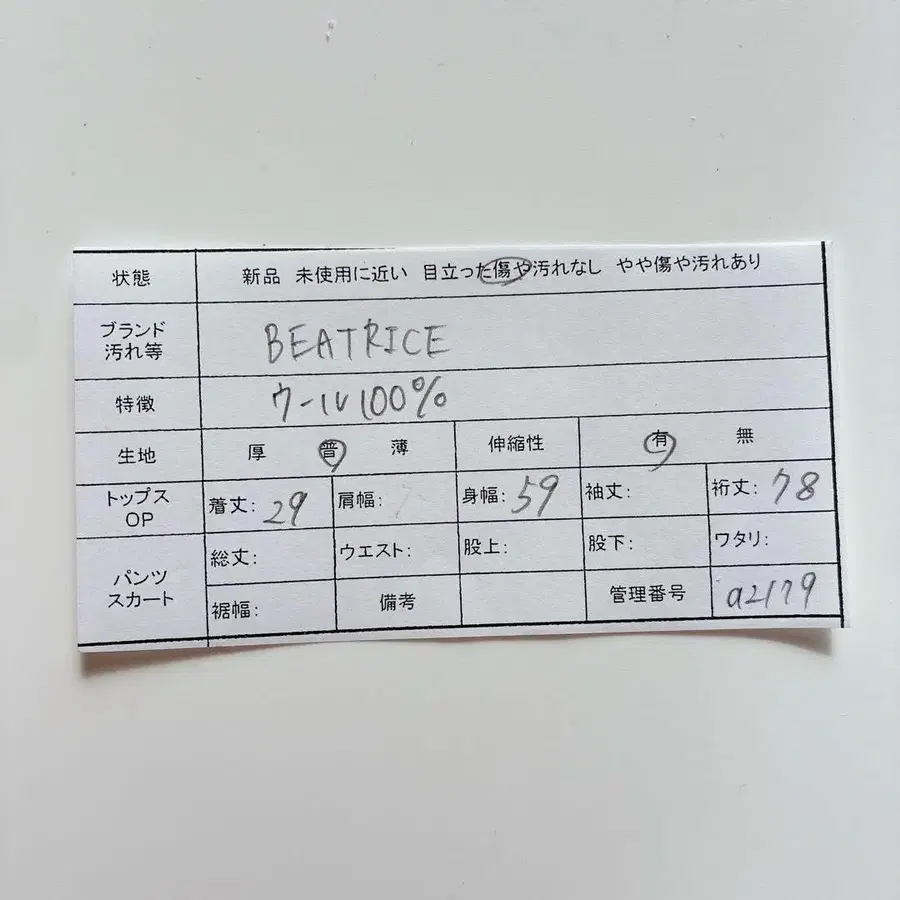 状態 新品 未使用に近い 目立った傷や汚れなし やや傷や汚れあり
ブランド
汚れ等
BEATRICE
特徴 ウール100%
生地 厚 普 薄 伸縮性 有 無
トップス
OP
着丈: 29 肩幅: 身幅: 59 袖丈: 裄丈: 78
パンツ
スカート
総丈: ウエスト: 股上: 股下: ワタリ:
裾幅: 備考 管理番号 a2179